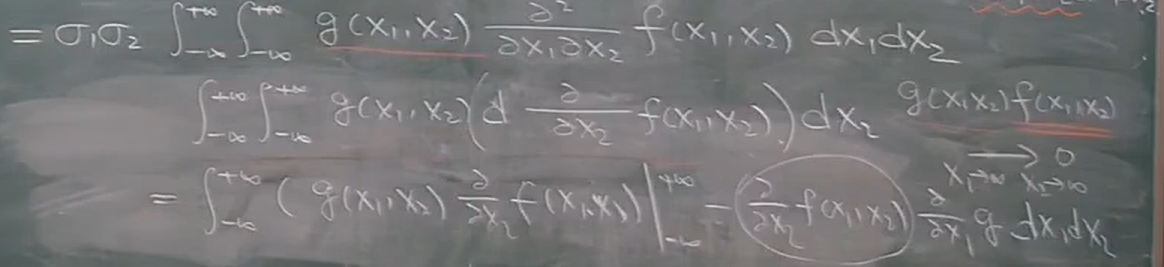 = σ₁σ₂ ∫_{-∞}^{+∞} ∫_{-∞}^{+∞} g(x₁,x₂) ∂²/∂x₁∂x₂ f(x₁,x₂) dx₁dx₂
∫_{-∞}^{+∞} ∫_{-∞}^{+∞} g(x₁,x₂) (d ∂/∂x₂ f(x₁,x₂)) dx₂ g(x₁x₂) f(x₁,x₂)
→ 0
x₁→∞ x₂→∞
= ∫_{-∞}^{+∞} ( g(x₁,x₂) ∂/∂x₂ f(x₁,x₂) |_{-∞}^{+∞} - (∂/∂x₂ f(x₁,x₂)) ∂/∂x₁ g dx₁dx₂